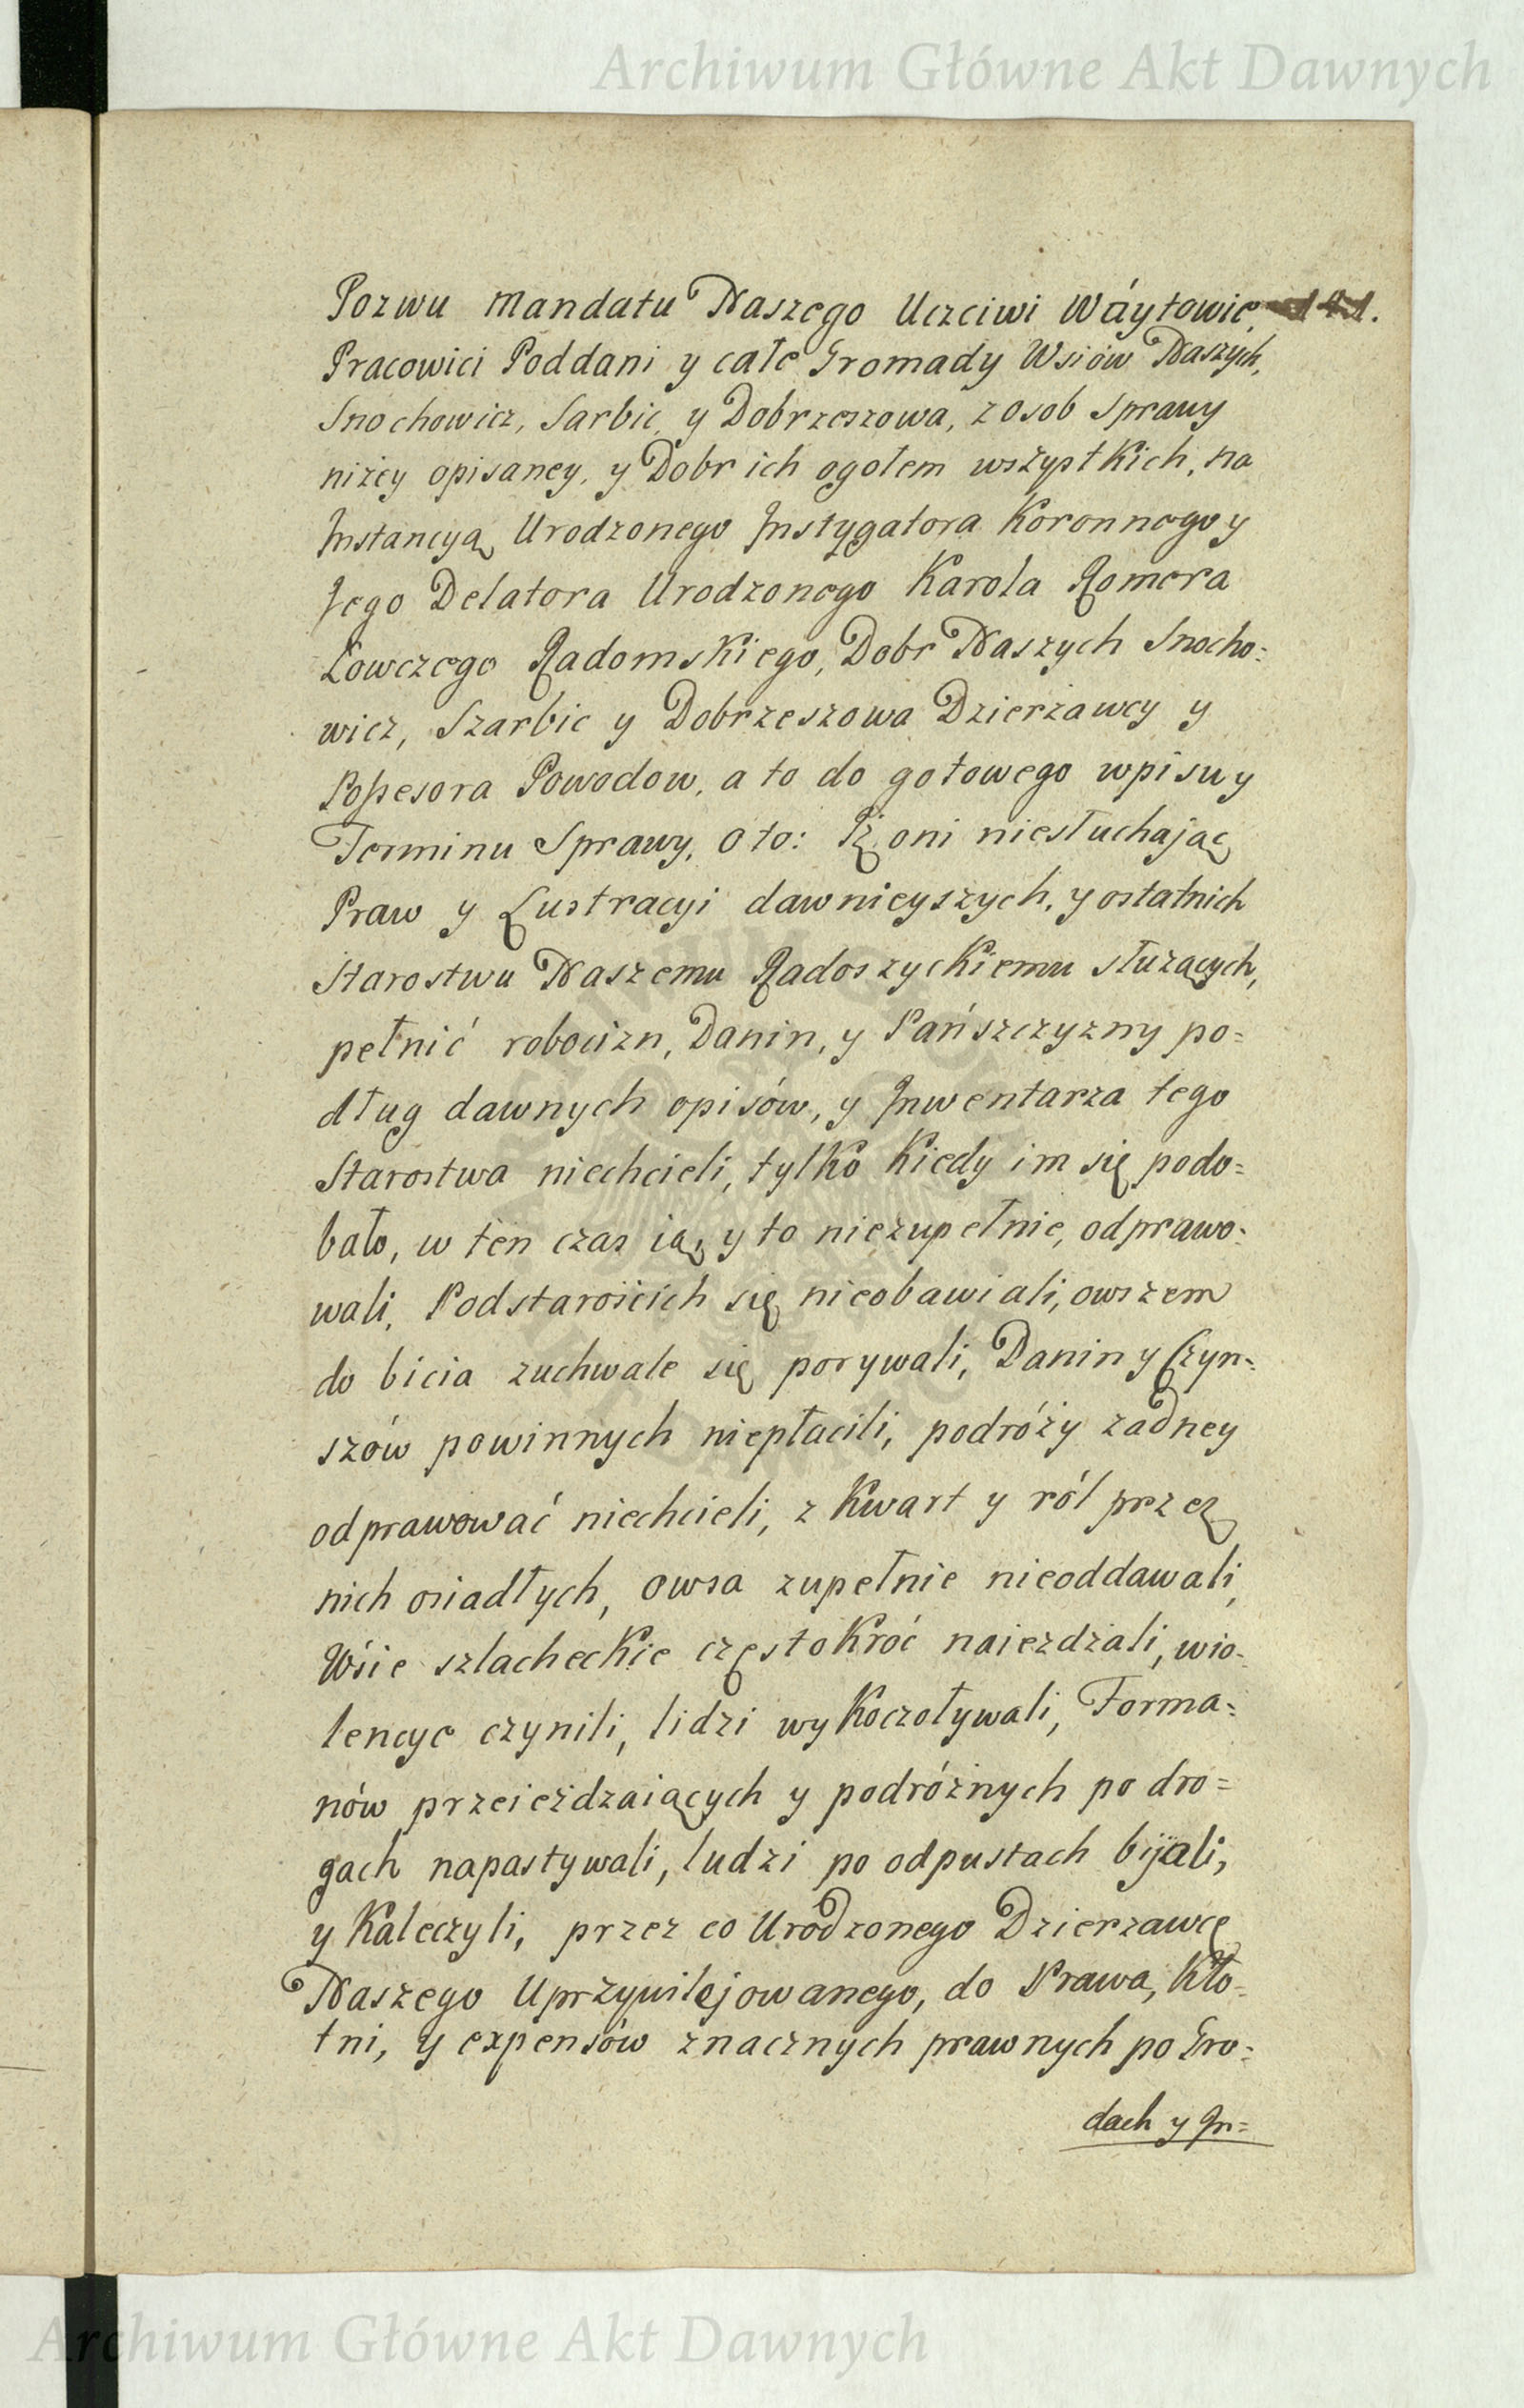 Archiwum Główne Akt Dawnych
Pozwu Mandatu Naszego Uczciwi Wáytowie, 141.
Pracowici Poddani y całe Gromady Wsiów Naszych,
Snochowicz, Sarbic, y Dobrzeszowa, z osob Sprawy
niżey opisaney, y Dobr ich ogołem wszystkich, na
Instancyą Urodzonego Instygatora Koronnego y
Jego Delatora Urodzonego Karola Romera
Łowczego Radomskiego, Dobr Naszych Snocho=
wicz, Szarbic y Dobrzeszowa Dzierzawcy y
Possesora Powodow, a to do gotowego wpisu y
Terminu Sprawy, o to: Iż oni niesłuchając
Praw y Lustracyi dawnieyszych, y ostatnich
Starostwu Naszemu Radoszyckiemu służących,
pełnić robocizn, Danin, y Pańszczyzny po=
dług dawnych opisów, y Inwentarza tego
Starostwa niechcieli, tylko kiedy im się podo=
bało, w ten czas ią, y to niezupełnie, odprawo=
wali, Podstarościch się nieobawiali, owszem
do bicia zuchwale się porywali, Danin y Czyn=
szów powinnych niepłacili, podróży zadney
odprawować niechcieli, z Kwart y ról przez
nich osiadłych, owsa zupełnie nieoddawali,
Wśie szlacheckie częstokroć naiezdzali, wio=
lencye czynili, lidzi wykoczoływali, Forma=
nów przeieżdzaiących y podróżnych po dro=
gach napastywali, ludzi po odpustach bijali,
y kaleczyli, przez co Urodzonego Dzierzawcę
Naszego Uprzywilejowanego, do Prawa, kło=
tni, y expensów znacznych prawnych po Gro=
dach y In=
Archiwum Główne Akt Dawnych